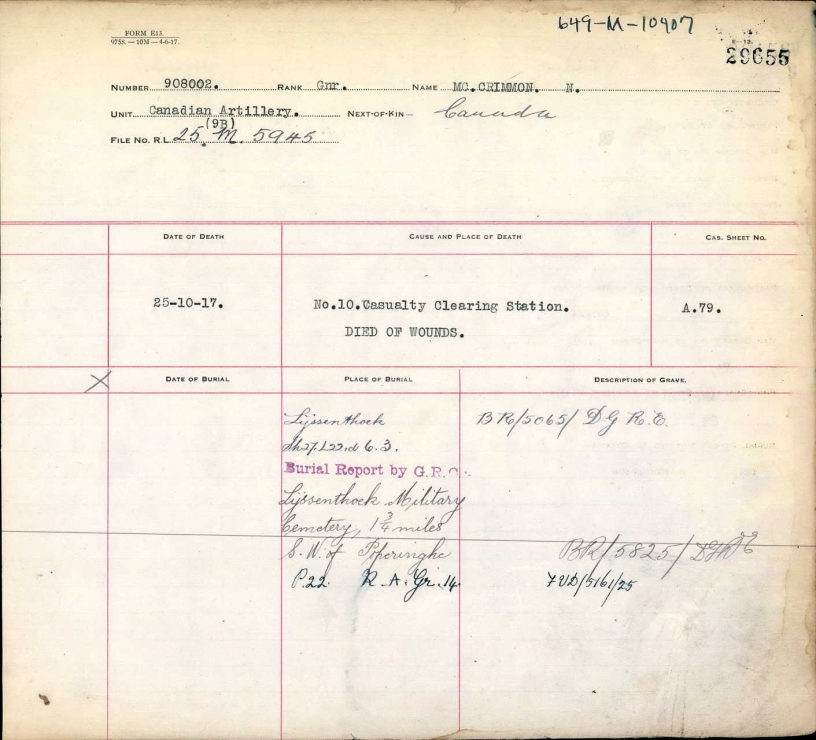 FORM E13.
9758.—10M—4-6-17.
649-M-10407
29655
NUMBER 908002. RANK Gnr. NAME MC.CRIMMON. N.
UNIT Canadian Artillery. NEXT-OF-KIN— Canada
(9B)
FILE NO. R.L. 25. M. 5945
DATE OF DEATH CAUSE AND PLACE OF DEATH CAS. SHEET NO.
25-10-17. No.10.Casualty Clearing Station. A.79.
DIED OF WOUNDS.
X DATE OF BURIAL PLACE OF BURIAL DESCRIPTION OF GRAVE.
Lijssenthoek BR/5065/ D G R.E.
Sh27.L22.d 6.3.
Burial Report by G.R.
Lijssenthoek Military
Cemetery, 1 3/4 miles
S.W. of Poperinghe BR/5825/
P.22. R.A. Gr.14 7VD/5161/25